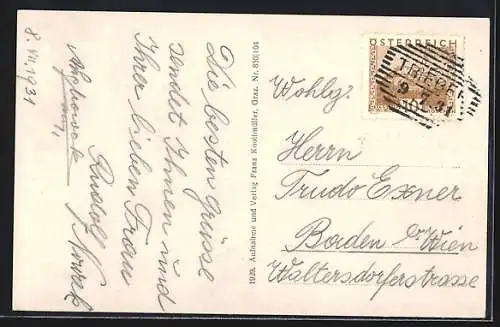 8.VII.1931
Die besten Grüsse
sendet Ihnen und
Ihrer lieben Frau
Rudolf Nowak
1929. Aufnahme und Verlag Franz Knollmüller, Graz. Nr.
ÖSTERREICH
TRIEBEN
9.7.31
Wohlg.
Herrn
Trudo Exner
Baden b/Wien
Waltersdorferstrasse